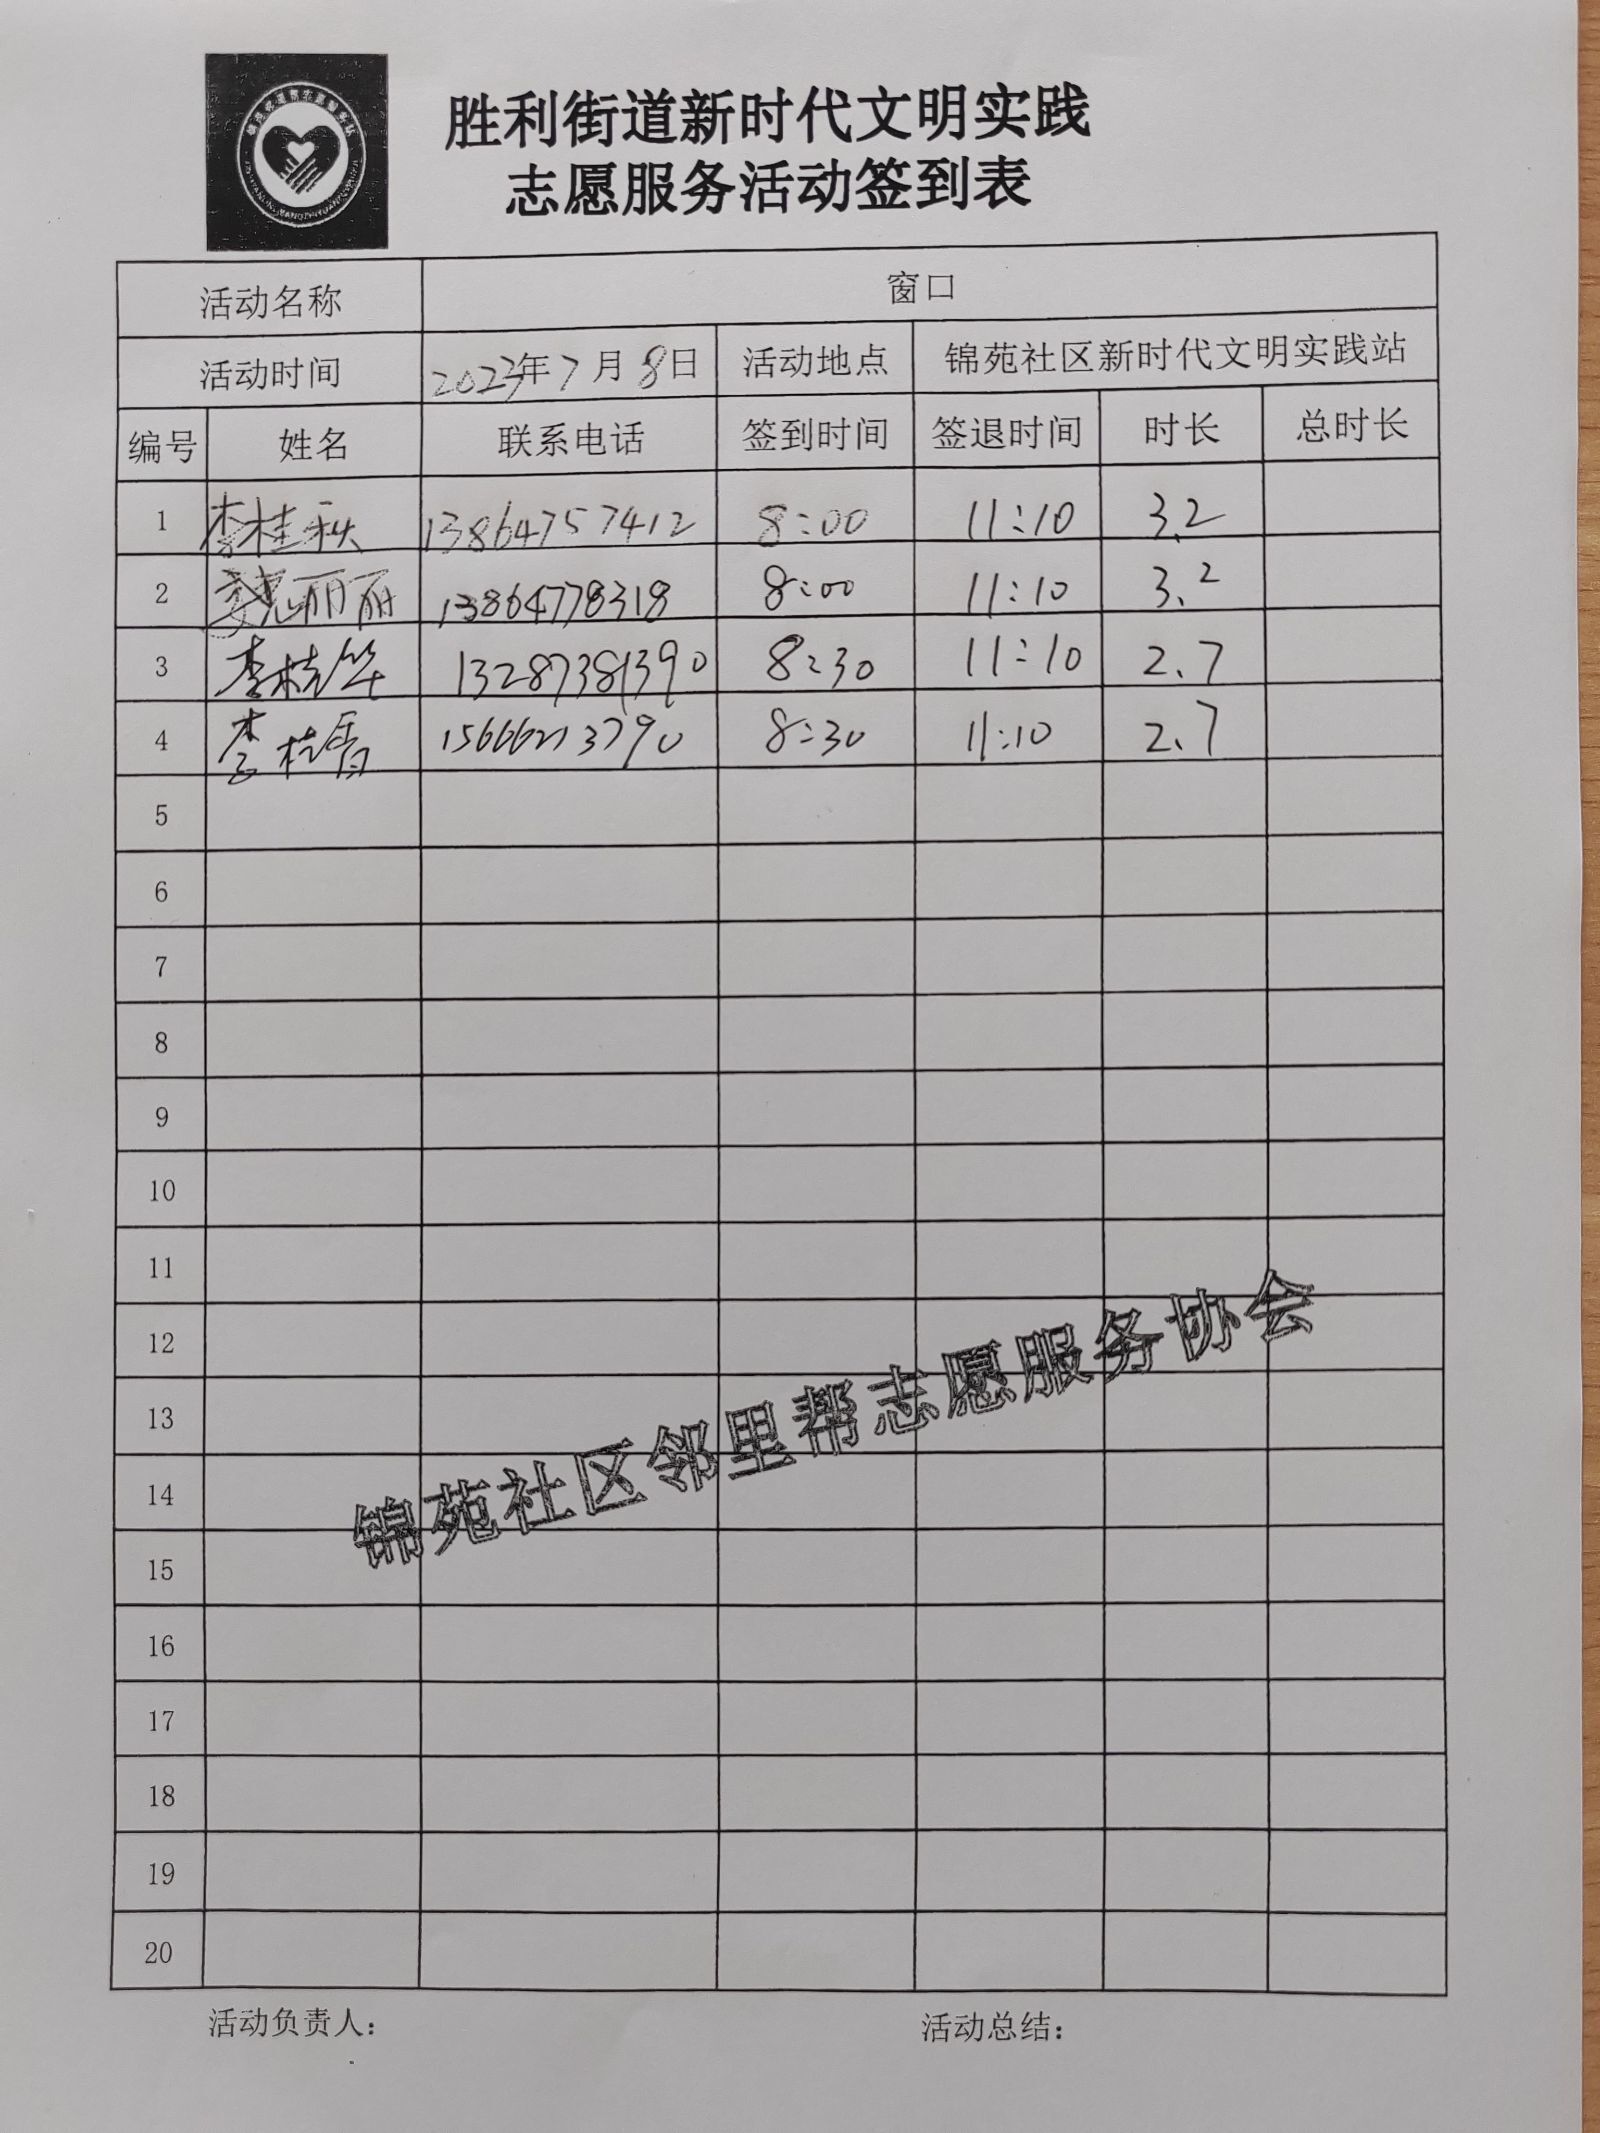 胜利街道新时代文明实践
志愿服务活动签到表
活动名称 窗口
活动时间 2023年7月8日 活动地点 锦苑社区新时代文明实践站
编号 姓名 联系电话 签到时间 签退时间 时长 总时长
1 李桂秋 13864757412 8:00 11:10 3.2
2 丽丽 13864778318 8:00 11:10 3.2
3 李桂华 13287381390 8:30 11:10 2.7
4 李桂香 15666213790 8:30 11:10 2.7
5
6
7
8
9
10
11
12
13
14
15
16
17
18
19
20
锦苑社区邻里帮志愿服务协会
活动负责人: 活动总结: